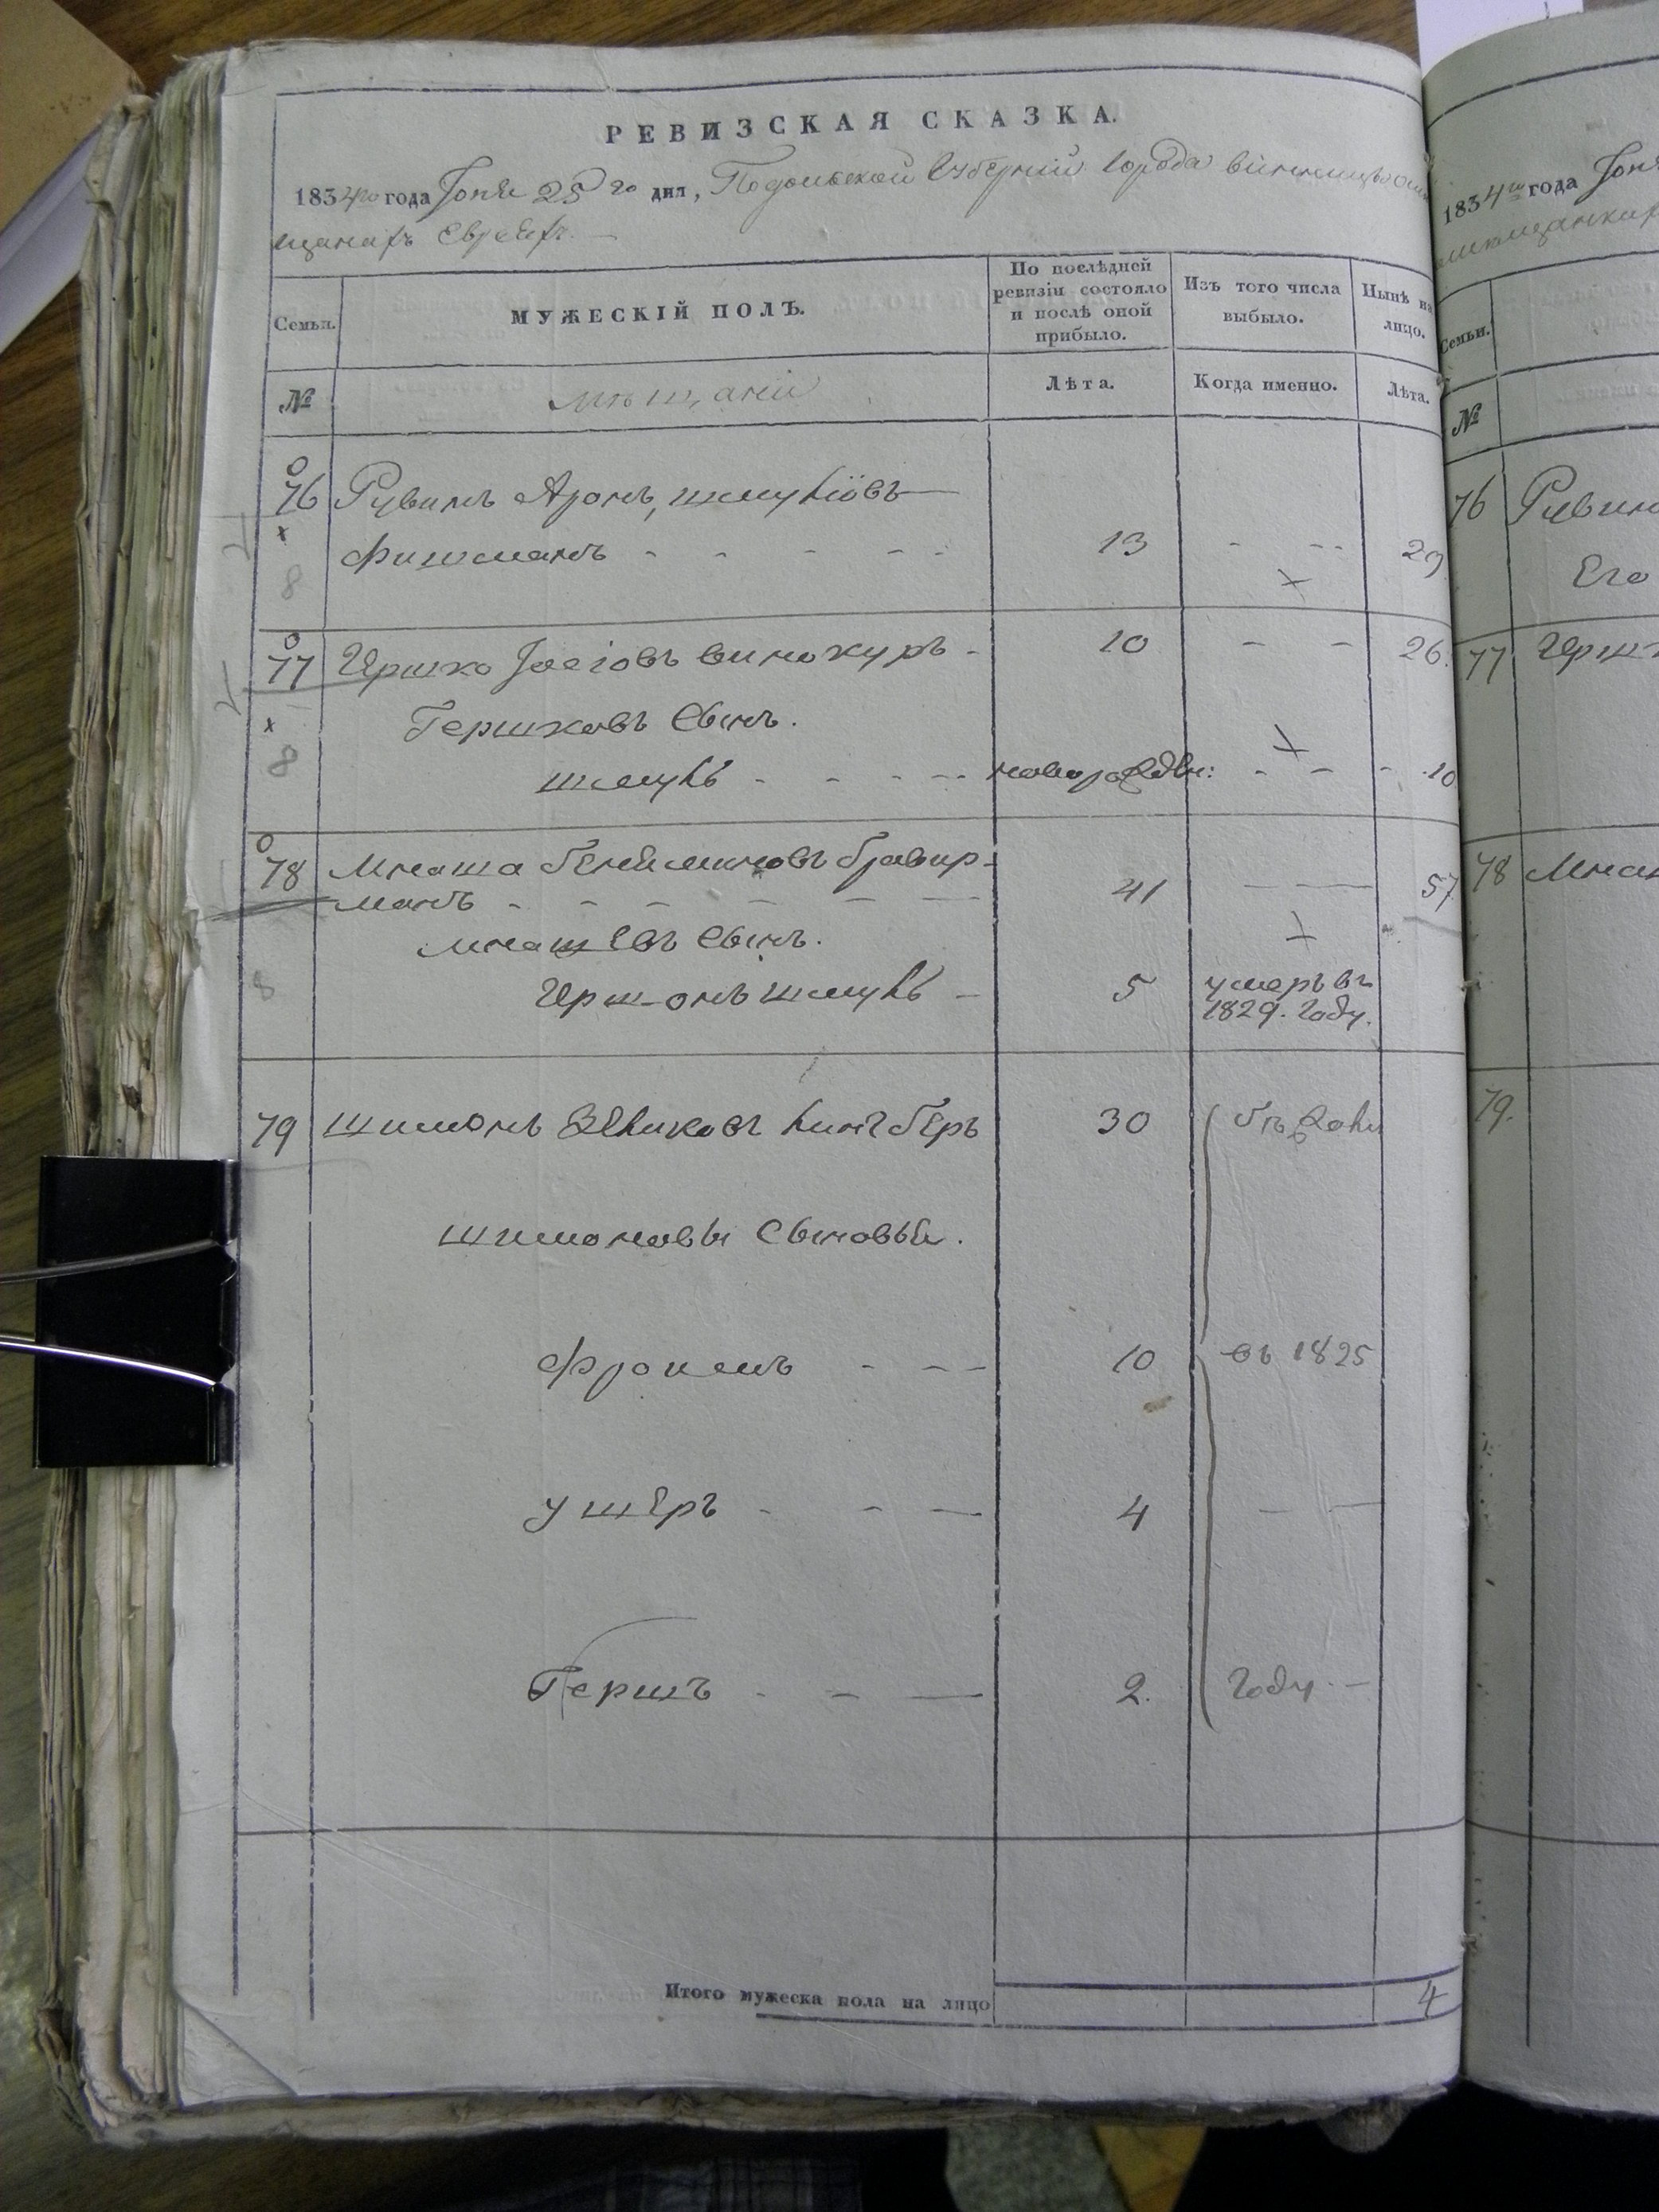 РЕВИЗСКАЯ СКАЗКА.
1834го года Іюня 25го дня, Подольской Губерніи города Винницы о мѣ
щанахъ Евреяхъ.
Семьи.
МУЖЕСКІЙ ПОЛЪ.
По послѣдней ревизіи состояло и послѣ оной прибыло.
Изъ того числа выбыло.
Нынѣ на лицо.
№
мѣщаніи
Лѣта.
Когда именно.
Лѣта.
76 Рувинъ Аронъ Шмулiовъ
Фишманъ - - - - - 13 - - - 29
8
77 Гершко Іосіовъ Винокуръ - 10 - - 26.
Гершковъ Сынъ.
8
Шмуль - - - - новорожден: - - - 10
78 Мнаша Бенъяминовъ Бравер-
манъ - - - - - - 41 - - 57
Мнашевъ Сынъ.
8
Гершонъ Шмуль - 5 умеръ въ
1829. Году.
79 Шимонъ Зеликовъ Лингберъ 30 Бѣжали
Шимоновы Сыновья.
Фроимъ - - - 10 въ 1825
Ушеръ - - - 4 - -
Гершъ - - - 2. Году. -
Итого мужеска пола на лицо 4
1834го года
Семьи.
№
76 Рувин
Его
77 Гершк
78 Мнаш
79.